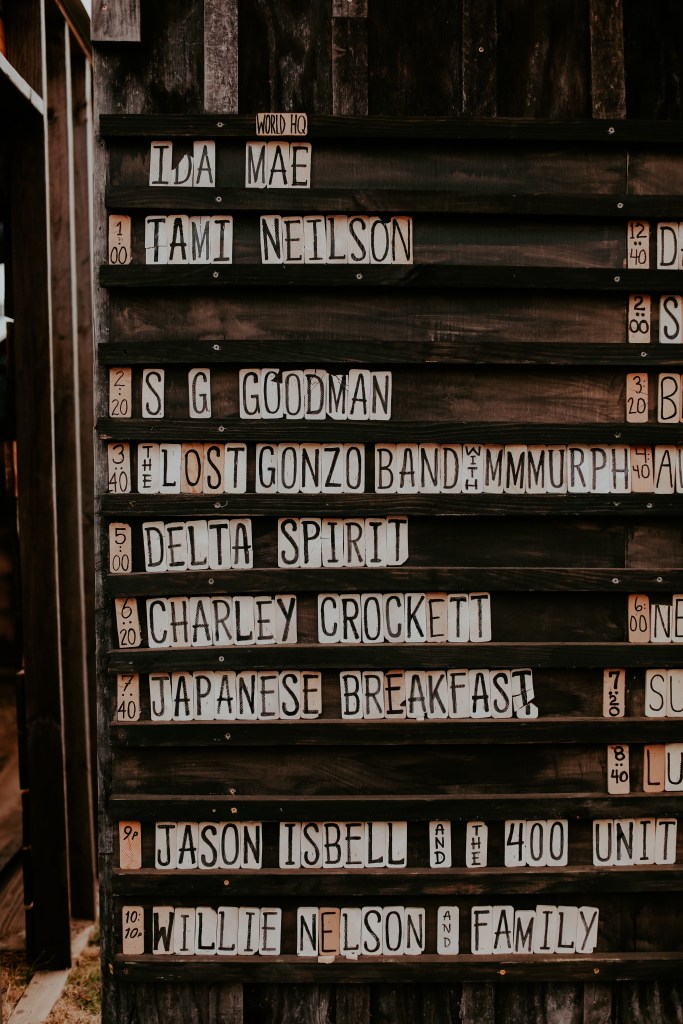 WORLD HQ
IDA MAE
1:00 TAMI NEILSON 12:40 D
2:00 S
2:20 S G GOODMAN 3:20 B
3:40 THE LOST GONZO BAND WITH MMMURPH 4:40 AU
5:00 DELTA SPIRIT
6:20 CHARLEY CROCKETT 6:00 NE
7:40 JAPANESE BREAKFAST 7:20 SU
8:40 LU
9P JASON ISBELL AND THE 400 UNIT
10:10P WILLIE NELSON AND FAMILY